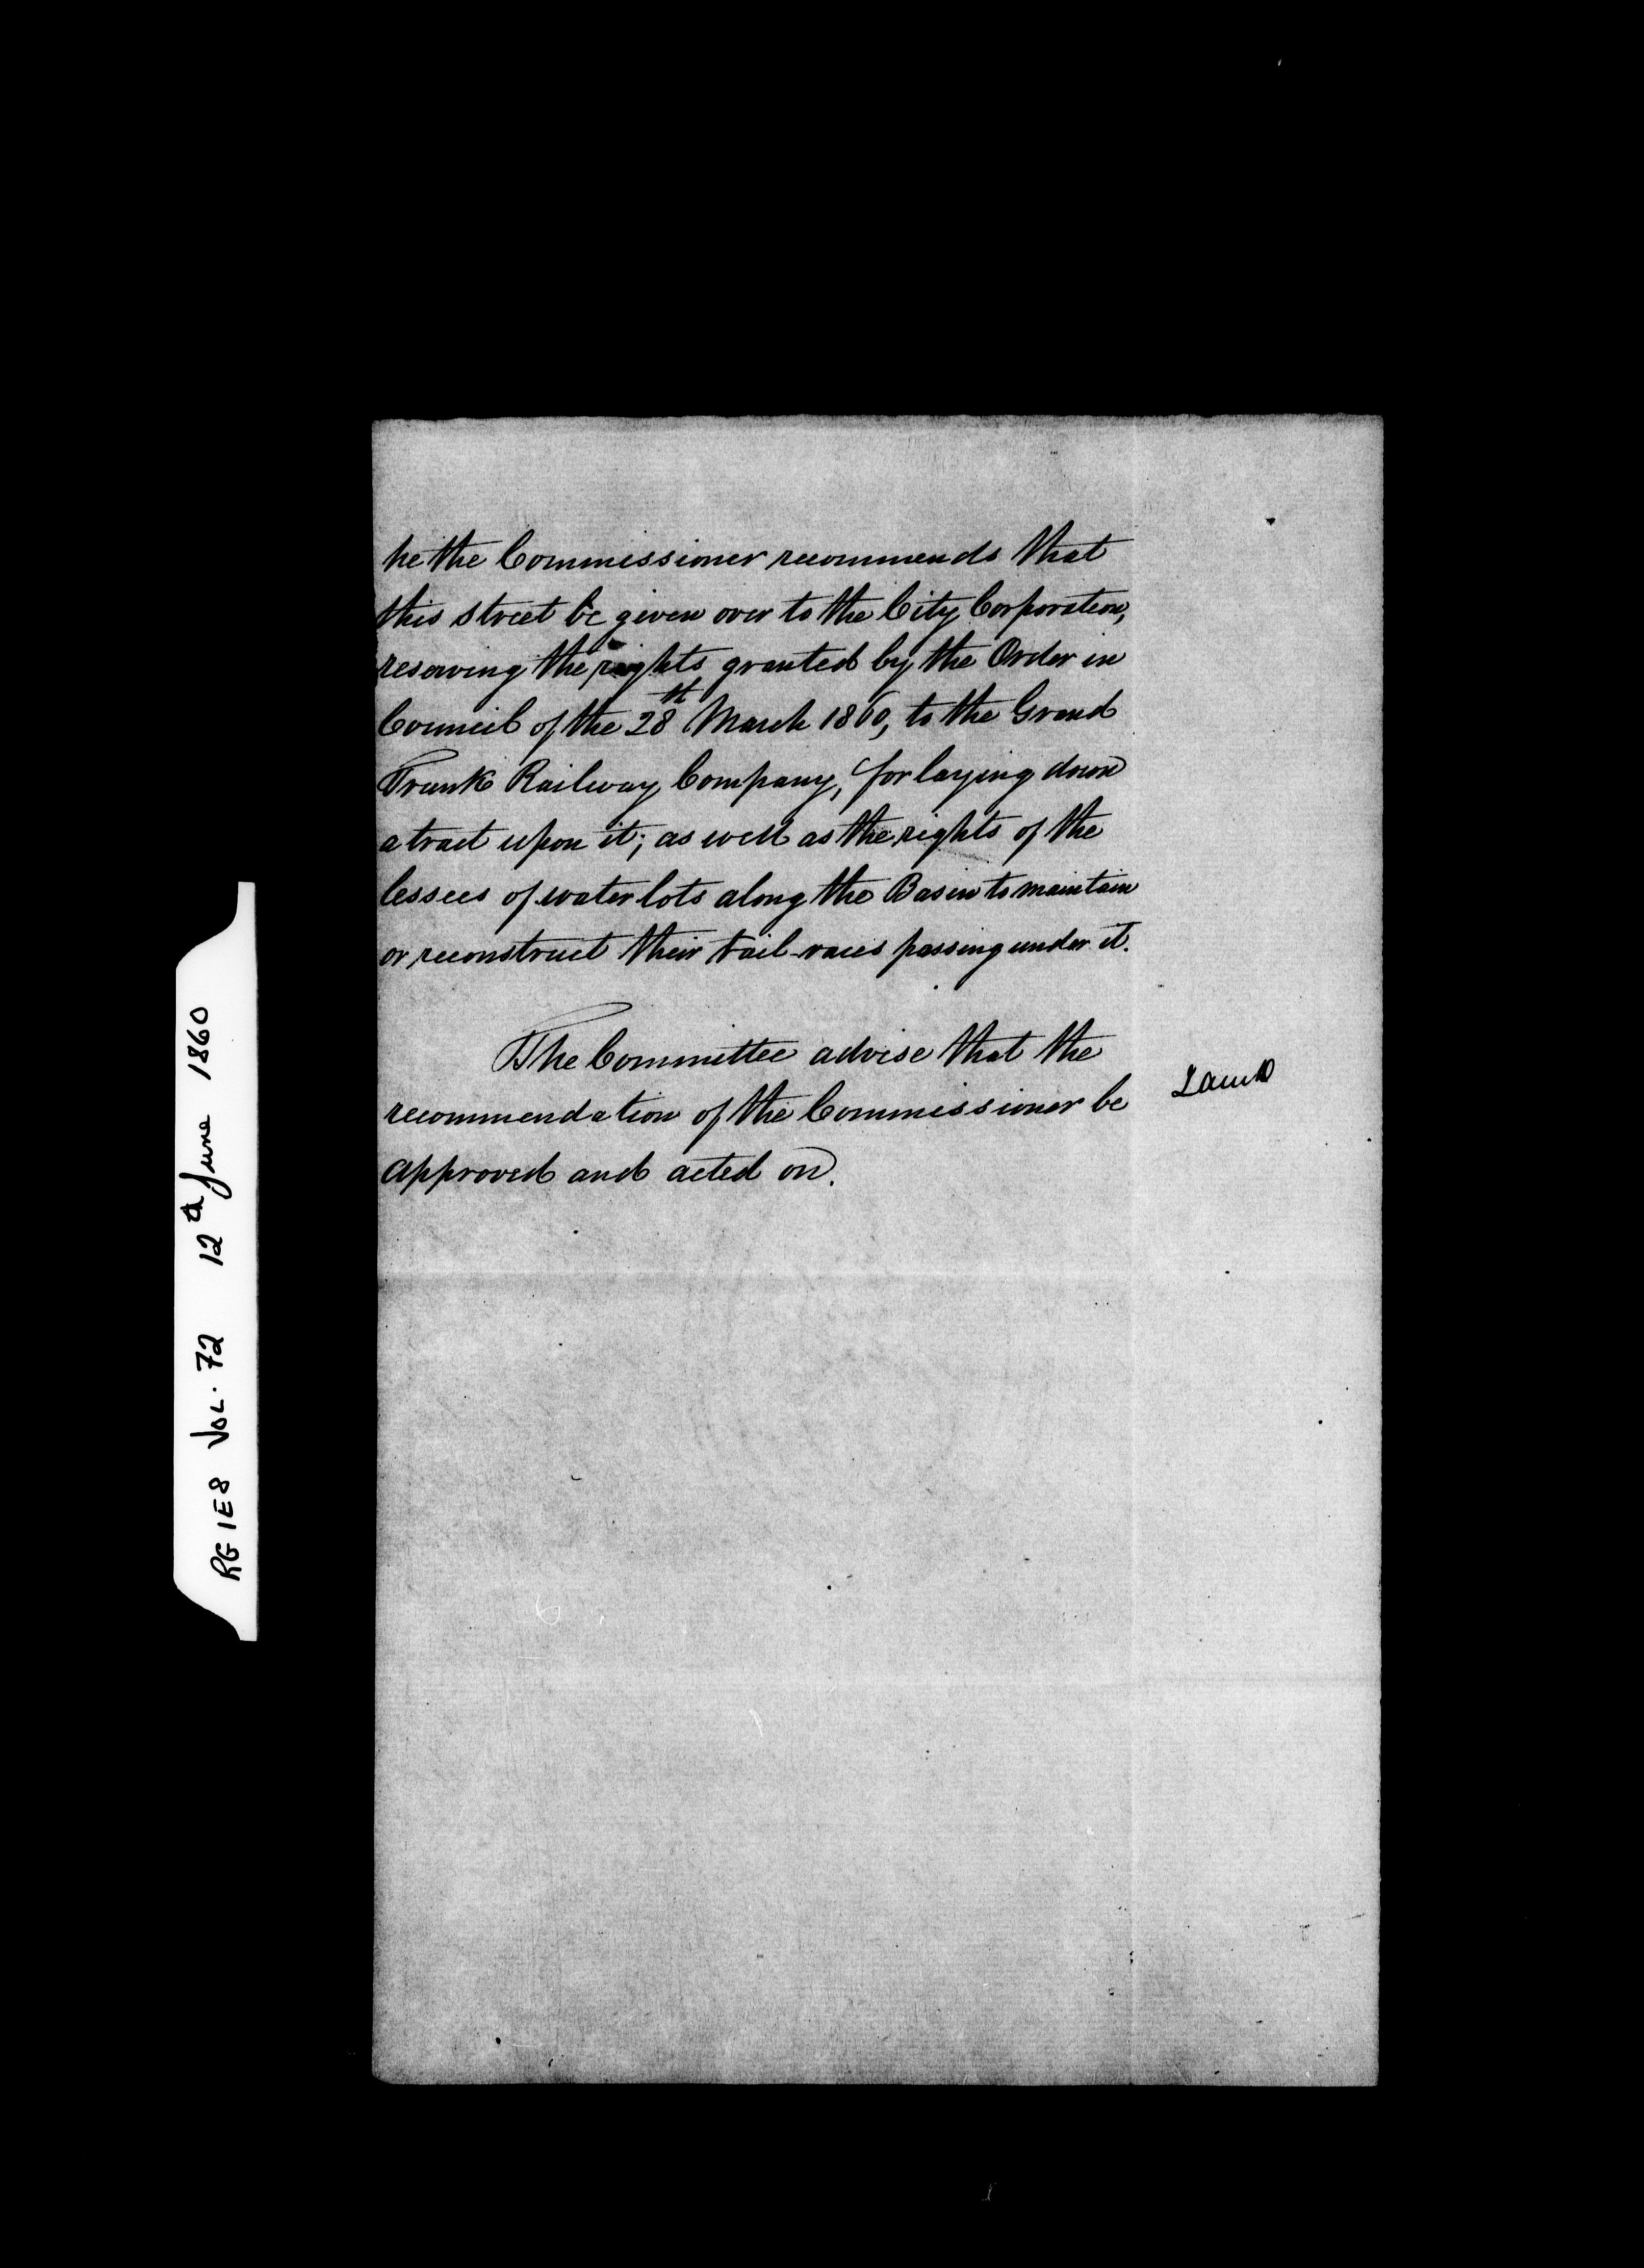 he the Commissioner recommends that
this street be given over to the City Corporation,
reserving the rights granted by the Order in
Council of the 28th March 1860, to the Grand
Trunk Railway Company, for laying down
a tract upon it; as well as the rights of the
lessees of water lots along the Basin to maintain
or reconstruct their tail-races passing under it.
The Committee advise that the
recommendation of the Commissioner be
approved and acted on.
RG 1E8 VOL. 72 12th June 1860